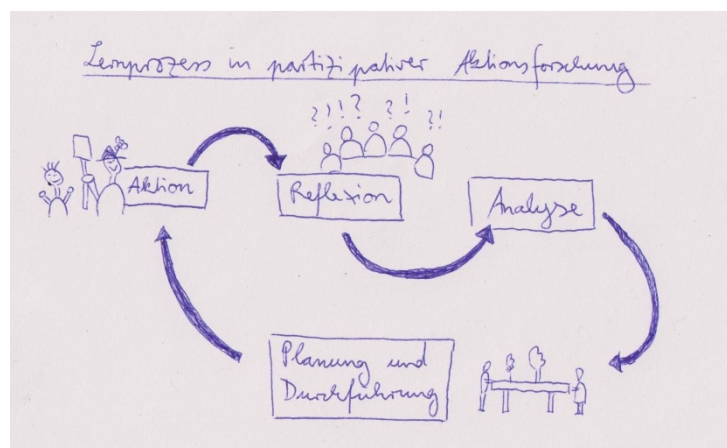 Lernprozess in partizipativer Aktionsforschung
?!!? ?! ?!
Aktion
Reflexion
Analyse
Planung und
Durchführung